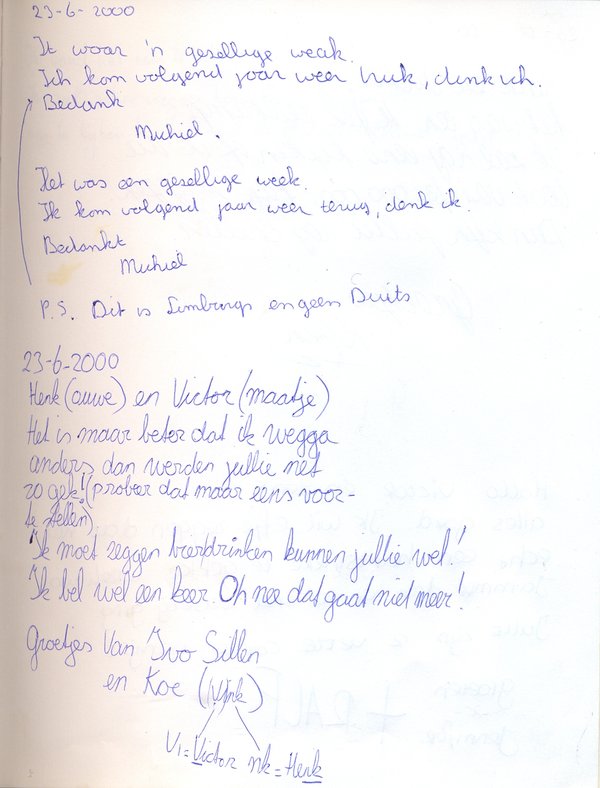 23-6-2000
It woar 'n gesellige weak.
Ich kom volgend joar weer truk, denk ich.
Bedank
Michiel.
Het was een gesellige week.
Ik kom volgend jaar weer terug, denk ik.
Bedankt
Michiel
P.S. Dit is Limburgs en geen Duits
23-6-2000
Henk (auwe) en Victor (maatje)
Het is maar beter dat ik wegga
anders dan werden jullie net
zo gek! (probeer dat maar eens voor-
te stellen)
Ik moet zeggen bierdrinken kunnen jullie wel!
Ik bel wel een keer. Oh nee dat gaat niet meer!
Groetjes Van Ivo Sillen
en Koe (Vink)
Vi=Victor nk=Henk